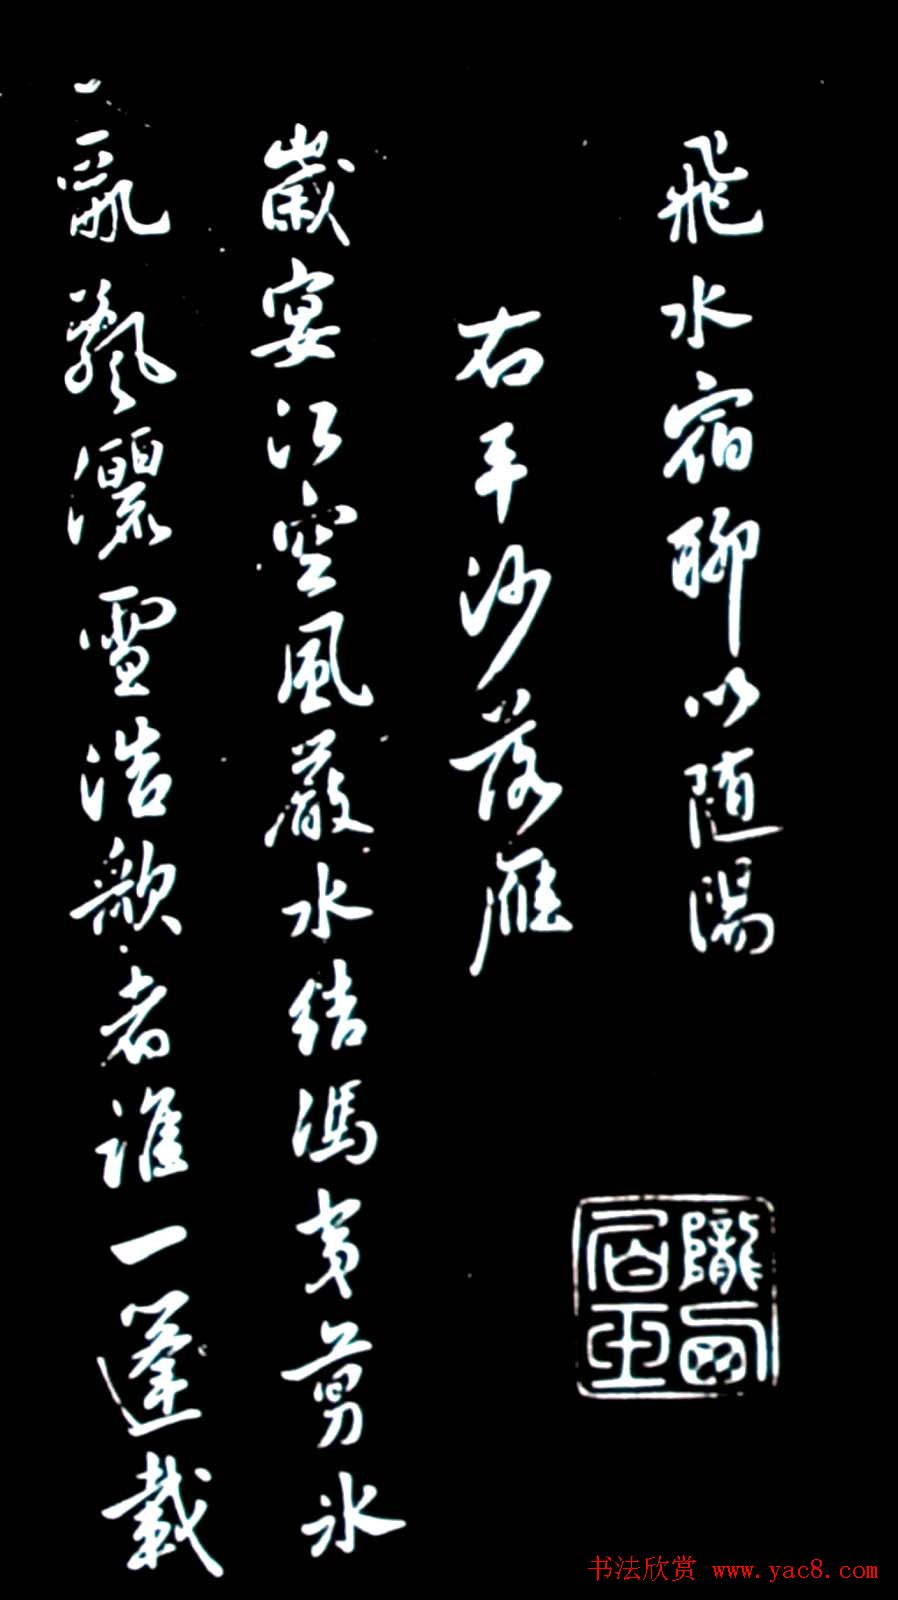 飛水宿聊以随陽
右平沙落雁
歲宴江空風嚴水結馮夷剪氷
亂飄灑雪浩歌者誰一蓬載
隴西
书法欣赏 www.yac8.com